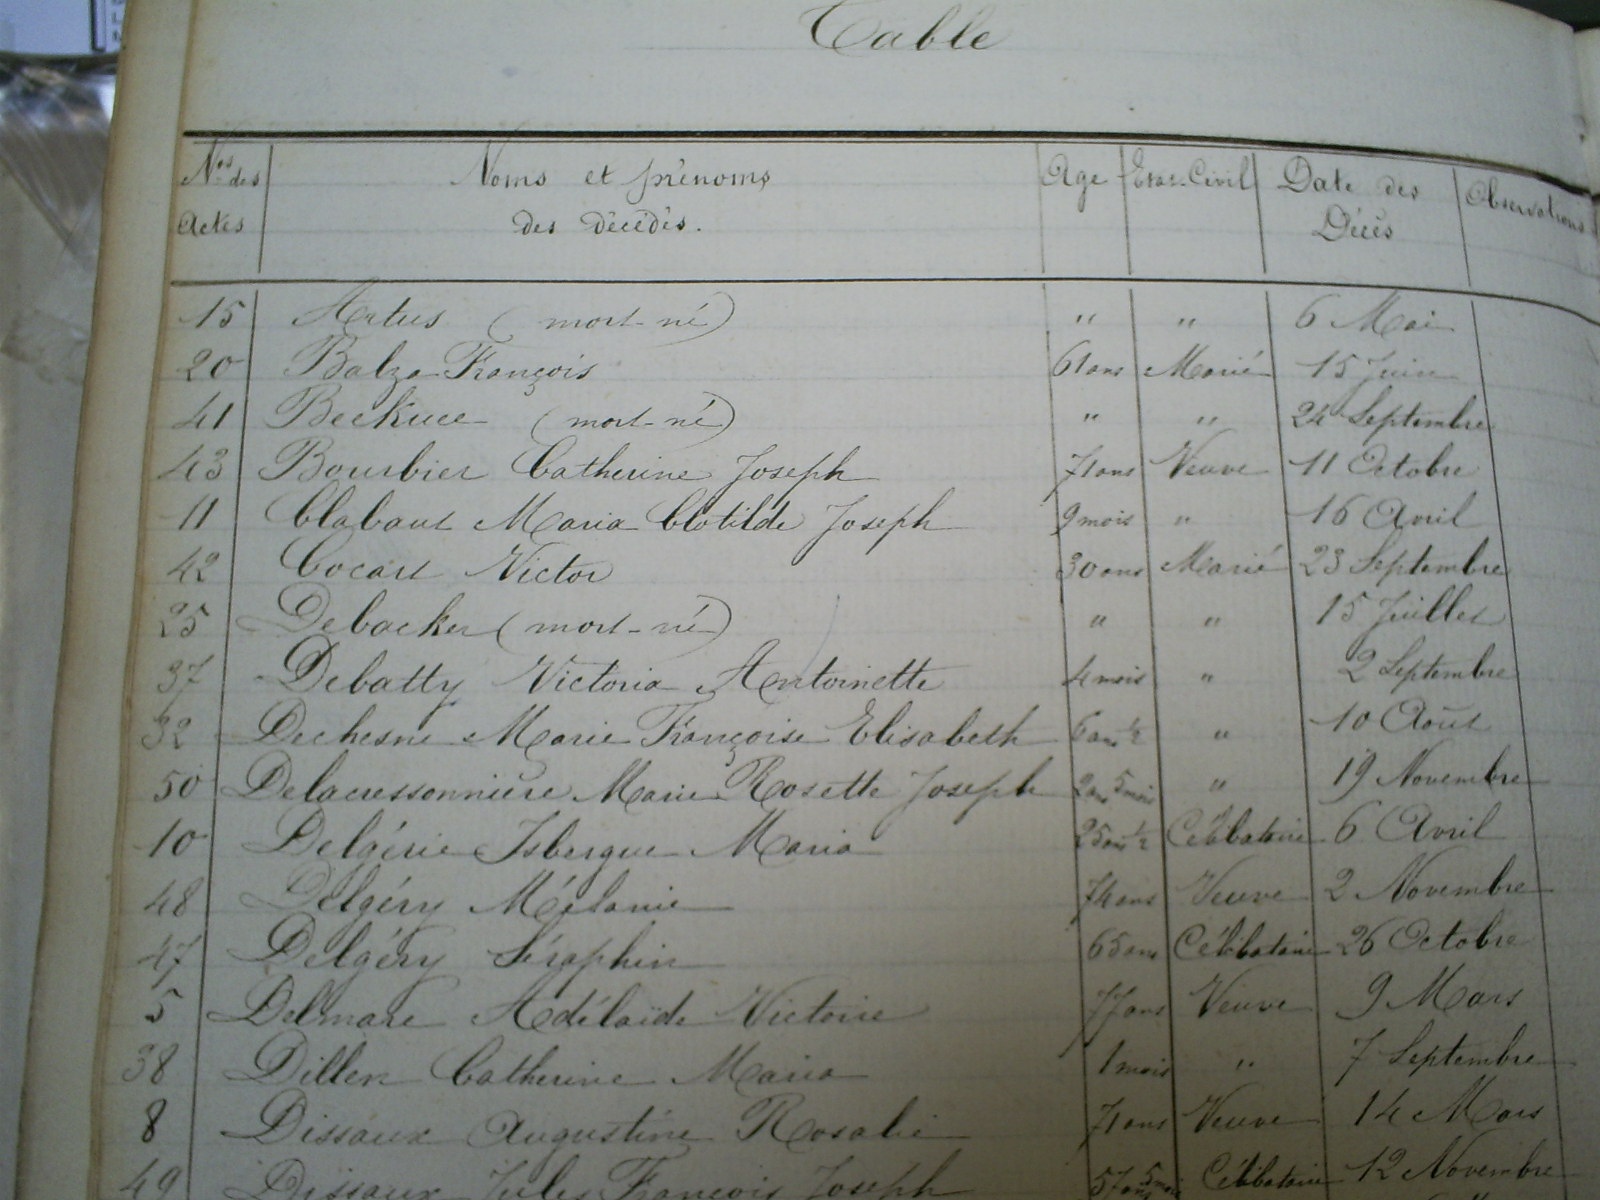 Table
Nos des Actes Noms et prénoms des décédés. Age Etat-Civil Date des Décès Observations
15 Artus (mort-né) " " 6 Mai
20 Balza François 61 ans Marié 15 Juin
41 Beckuee (mort-né) " " 24 Septembre
43 Bourbier Catherine Joseph 71 ans Veuve 11 Octobre
11 Clabaut Maria Clotilde Joseph 9 mois " 16 Avril
42 Cocart Victor 30 ans Marié 23 Septembre
25 Debacker (mort-né) " " 15 Juillet
37 Debatty Victoria Antoinette 4 mois " 2 Septembre
32 Dechesne Marie Françoise Elisabeth 6 ans ½ " 10 Août
50 Delacressonnière Marie Rosette Joseph 2 ans 5 mois " 19 Novembre
10 Delgérie Isbergue Maria 25 ans ½ Célibataire 6 Avril
48 Delgéry Mélanie 74 ans Veuve 2 Novembre
47 Delgéry Séraphin 65 ans Célibataire 26 Octobre
5 Delmare Adélaïde Victoire 77 ans Veuve 9 Mars
38 Dillen Catherine Maria 1 mois " 7 Septembre
8 Dissaux Augustine Rosalie 71 ans Veuve 14 Mars
49 Dissaux Jules François Joseph 57 ans 5 mois Célibataire 12 Novembre